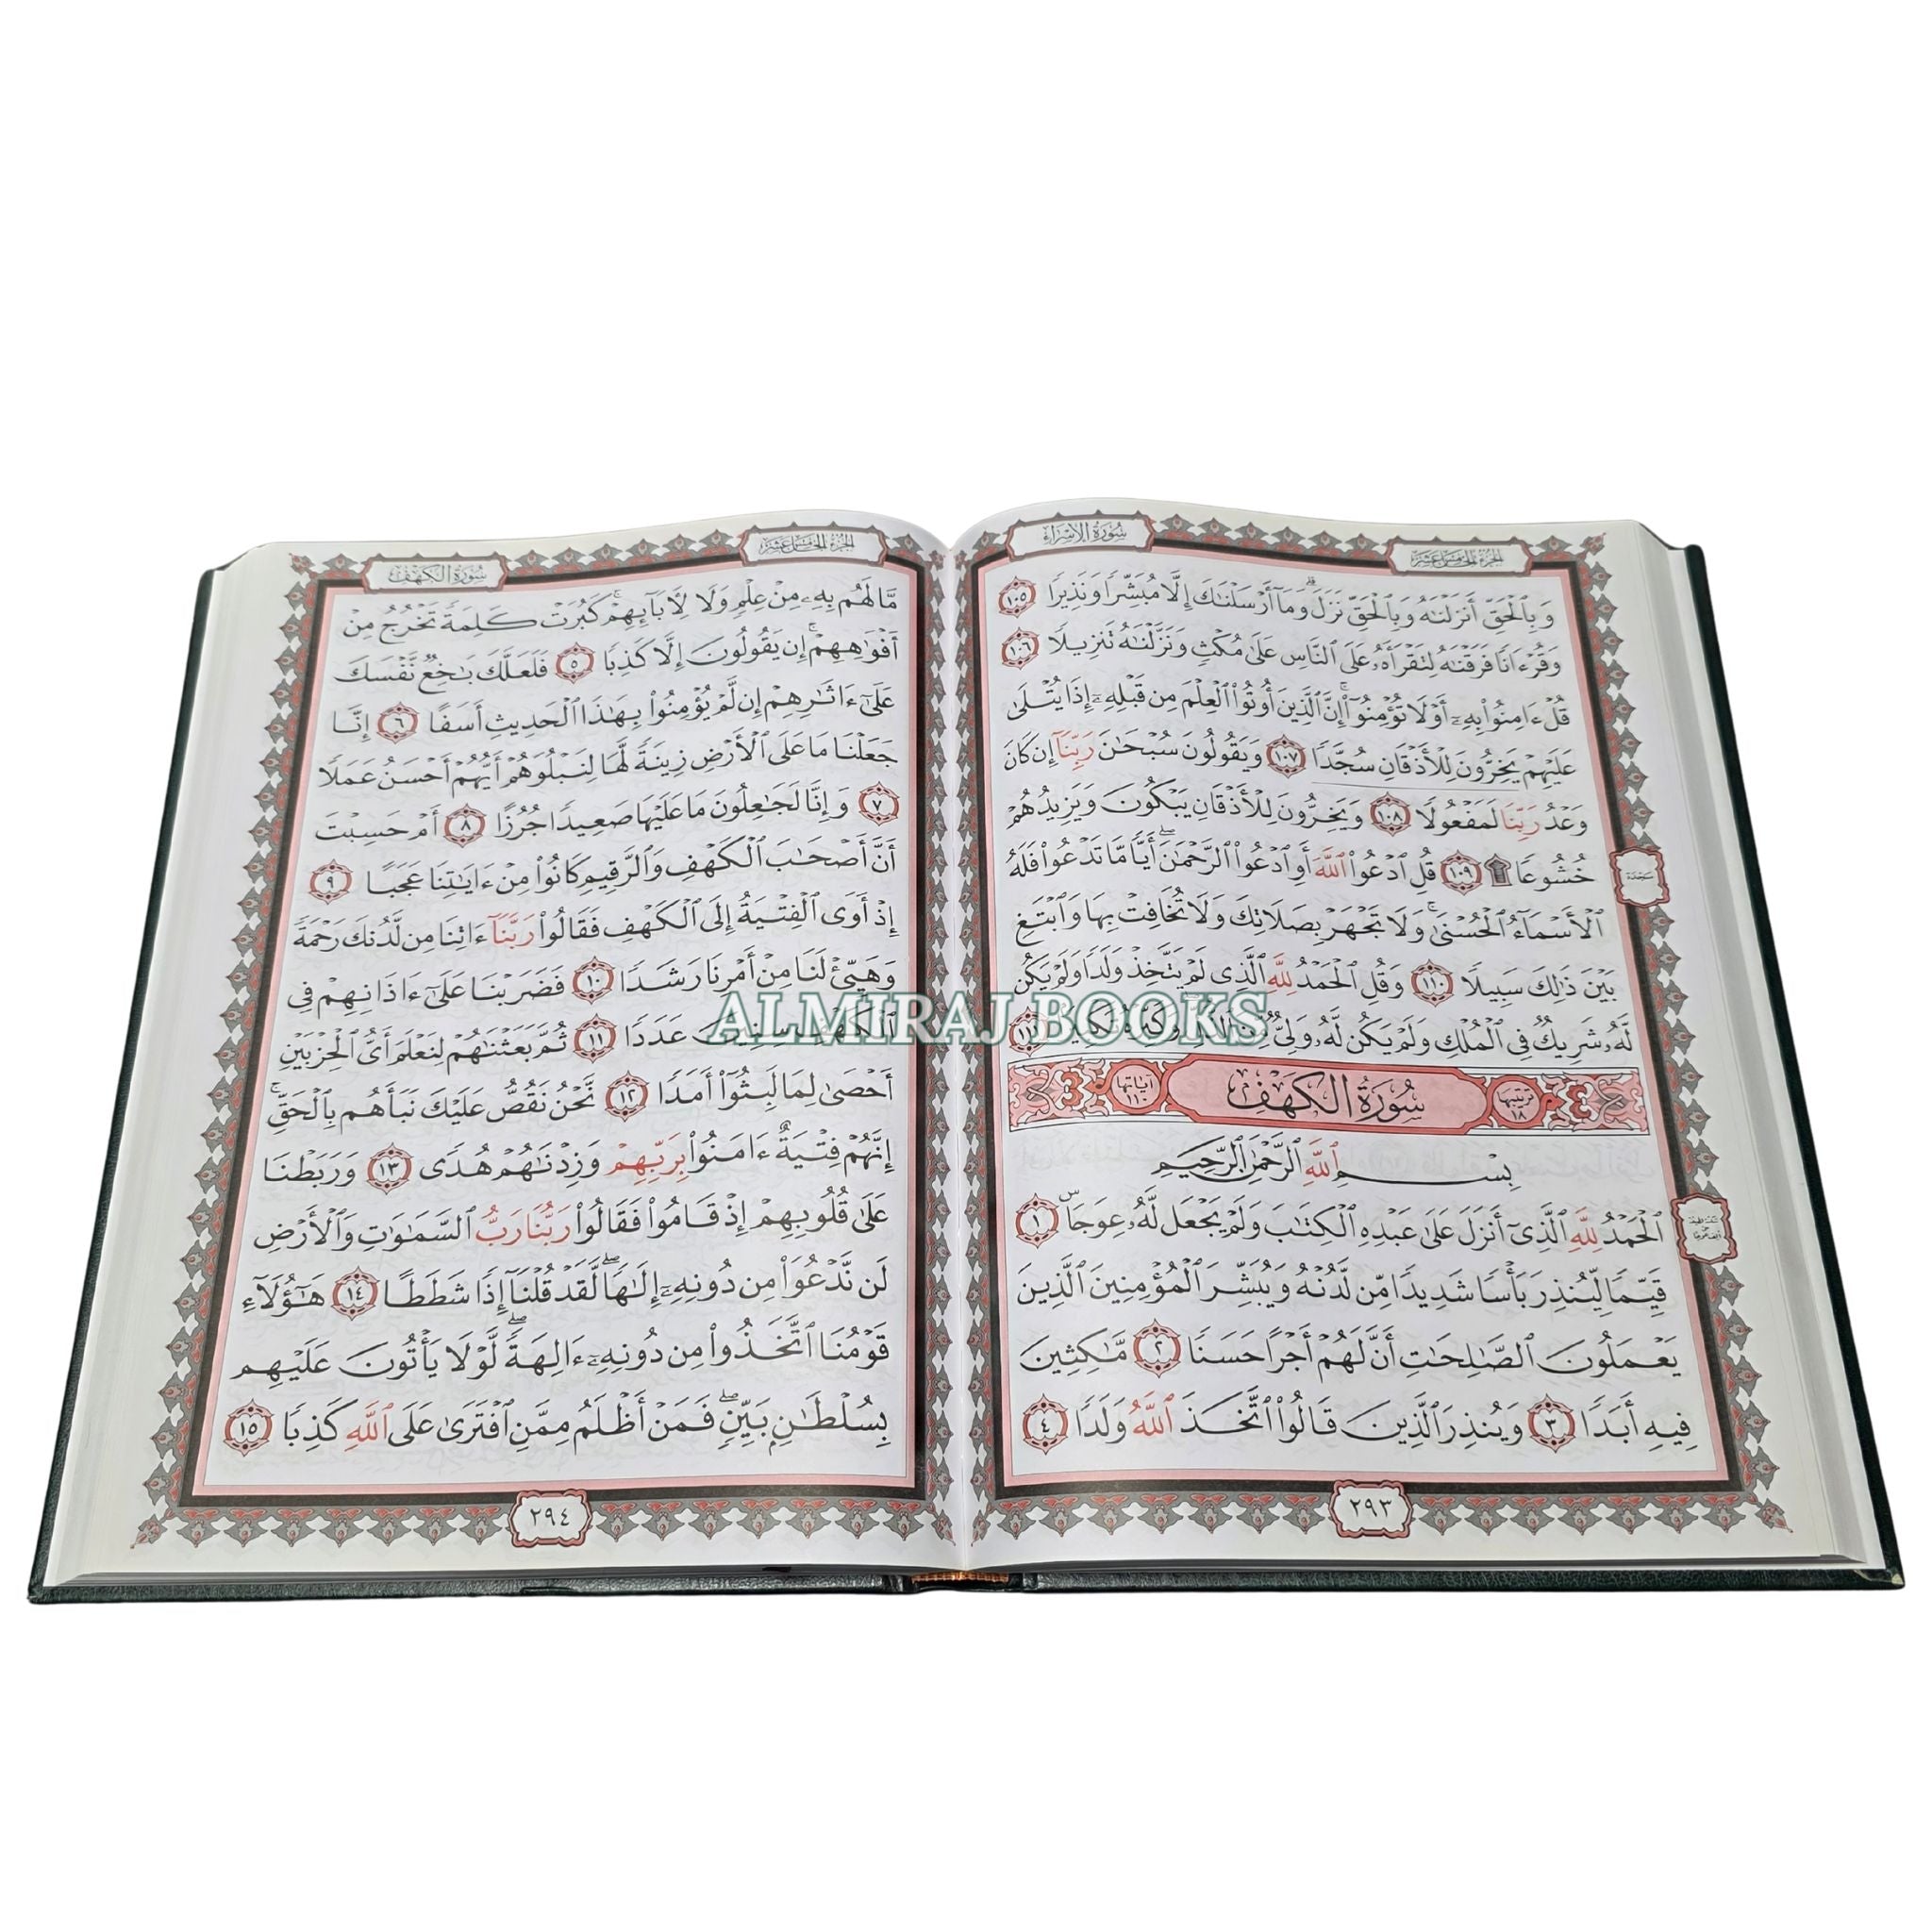 سُورَةُ الإِسْرَاءِ
الجُزْءُ الخَامِسَ عَشَرَ
وَبِٱلْحَقِّ أَنزَلْنَٰهُ وَبِٱلْحَقِّ نَزَلَ ۗ وَمَآ أَرْسَلْنَٰكَ إِلَّا مُبَشِّرًا وَنَذِيرًا ١٠٥
وَقُرْءَانًا فَرَقْنَٰهُ لِتَقْرَأَهُۥ عَلَى ٱلنَّاسِ عَلَىٰ مُكْثٍ وَنَزَّلْنَٰهُ تَنزِيلًا ١٠٦
قُلْ ءَامِنُوا۟ بِهِۦٓ أَوْ لَا تُؤْمِنُوٓا۟ ۚ إِنَّ ٱلَّذِينَ أُوتُوا۟ ٱلْعِلْمَ مِن قَبْلِهِۦٓ إِذَا يُتْلَىٰ
عَلَيْهِمْ يَخِرُّونَ لِلْأَذْقَانِ سُجَّدًا ١٠٧ وَيَقُولُونَ سُبْحَٰنَ رَبِّنَآ إِن كَانَ
وَعْدُ رَبِّنَا لَمَفْعُولًا ١٠٨ وَيَخِرُّونَ لِلْأَذْقَانِ يَبْكُونَ وَيَزِيدُهُمْ
خُشُوعًا ۩ ١٠٩ قُلِ ٱدْعُوا۟ ٱللَّهَ أَوِ ٱدْعُوا۟ ٱلرَّحْمَٰنَ ۖ أَيًّا مَّا تَدْعُوا۟ فَلَهُ
سَجْدَة
ٱلْأَسْمَآءُ ٱلْحُسْنَىٰ ۚ وَلَا تَجْهَرْ بِصَلَاتِكَ وَلَا تُخَافِتْ بِهَا وَٱبْتَغِ
بَيْنَ ذَٰلِكَ سَبِيلًا ١١٠ وَقُلِ ٱلْحَمْدُ لِلَّهِ ٱلَّذِى لَمْ يَتَّخِذْ وَلَدًا وَلَمْ يَكُن
لَّهُۥ شَرِيكٌ فِى ٱلْمُلْكِ وَلَمْ يَكُن لَّهُۥ وَلِىٌّ مِّنَ ٱلذُّلِّ ۖ وَكَبِّرْهُ تَكْبِيرًۢا ١١١
ترتيبها ١٨ سُورَةُ الكَهْفِ آياتها ١١٠
بِسْمِ ٱللَّهِ ٱلرَّحْمَٰنِ ٱلرَّحِيمِ
ٱلْحَمْدُ لِلَّهِ ٱلَّذِىٓ أَنزَلَ عَلَىٰ عَبْدِهِ ٱلْكِتَٰبَ وَلَمْ يَجْعَل لَّهُۥ عِوَجَا ۜ ١
قَيِّمًا لِّيُنذِرَ بَأْسًا شَدِيدًا مِّن لَّدُنْهُ وَيُبَشِّرَ ٱلْمُؤْمِنِينَ ٱلَّذِينَ
يَعْمَلُونَ ٱلصَّٰلِحَٰتِ أَنَّ لَهُمْ أَجْرًا حَسَنًا ٢ مَّٰكِثِينَ
فِيهِ أَبَدًا ٣ وَيُنذِرَ ٱلَّذِينَ قَالُوا۟ ٱتَّخَذَ ٱللَّهُ وَلَدًا ٤
٢٩٣
الجُزْءُ الخَامِسَ عَشَرَ
سُورَةُ الكَهْفِ
مَّا لَهُم بِهِۦ مِنْ عِلْمٍ وَلَا لِءَابَآئِهِمْ ۚ كَبُرَتْ كَلِمَةً تَخْرُجُ مِنْ
أَفْوَٰهِهِمْ ۚ إِن يَقُولُونَ إِلَّا كَذِبًا ٥ فَلَعَلَّكَ بَٰخِعٌ نَّفْسَكَ
عَلَىٰٓ ءَاثَٰرِهِمْ إِن لَّمْ يُؤْمِنُوا۟ بِهَٰذَا ٱلْحَدِيثِ أَسَفًا ٦ إِنَّا
جَعَلْنَا مَا عَلَى ٱلْأَرْضِ زِينَةً لَّهَا لِنَبْلُوَهُمْ أَيُّهُمْ أَحْسَنُ عَمَلًا
٧ وَإِنَّا لَجَٰعِلُونَ مَا عَلَيْهَا صَعِيدًا جُرُزًا ٨ أَمْ حَسِبْتَ
أَنَّ أَصْحَٰبَ ٱلْكَهْفِ وَٱلرَّقِيمِ كَانُوا۟ مِنْ ءَايَٰتِنَا عَجَبًا ٩
إِذْ أَوَى ٱلْفِتْيَةُ إِلَى ٱلْكَهْفِ فَقَالُوا۟ رَبَّنَآ ءَاتِنَا مِن لَّدُنكَ رَحْمَةً
وَهَيِّئْ لَنَا مِنْ أَمْرِنَا رَشَدًا ١٠ فَضَرَبْنَا عَلَىٰٓ ءَاذَانِهِمْ فِى
ٱلْكَهْفِ سِنِينَ عَدَدًا ١١ ثُمَّ بَعَثْنَٰهُمْ لِنَعْلَمَ أَىُّ ٱلْحِزْبَيْنِ
أَحْصَىٰ لِمَا لَبِثُوٓا۟ أَمَدًا ١٢ نَّحْنُ نَقُصُّ عَلَيْكَ نَبَأَهُم بِٱلْحَقِّ ۚ
إِنَّهُمْ فِتْيَةٌ ءَامَنُوا۟ بِرَبِّهِمْ وَزِدْنَٰهُمْ هُدًى ١٣ وَرَبَطْنَا
عَلَىٰ قُلُوبِهِمْ إِذْ قَامُوا۟ فَقَالُوا۟ رَبُّنَا رَبُّ ٱلسَّمَٰوَٰتِ وَٱلْأَرْضِ
لَن نَّدْعُوَا۟ مِن دُونِهِۦٓ إِلَٰهًا ۖ لَّقَدْ قُلْنَآ إِذًا شَطَطًا ١٤ هَٰٓؤُلَآءِ
قَوْمُنَا ٱتَّخَذُوا۟ مِن دُونِهِۦٓ ءَالِهَةً ۖ لَّوْلَا يَأْتُونَ عَلَيْهِم
بِسُلْطَٰنٍۭ بَيِّنٍ ۖ فَمَنْ أَظْلَمُ مِمَّنِ ٱفْتَرَىٰ عَلَى ٱللَّهِ كَذِبًا ١٥
٢٩٤
ALMIRAJ BOOKS